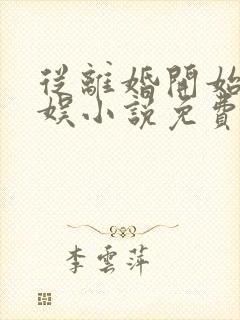 從離婚開始
娛小說免費
李雲萍